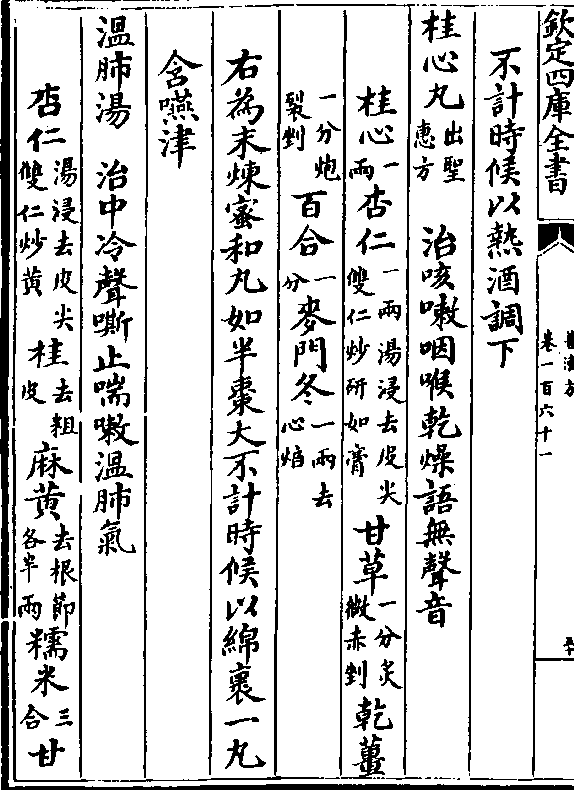 欽定四庫全書
卷一百六十一
不計時候以熱酒調下
桂心丸出聖惠方　治咳嗽咽喉乾燥語無聲音
桂心一兩杏仁一兩湯浸去皮尖雙仁炒研如膏甘草一分炙微赤剉乾薑
一分炮裂剉百合一分麥門冬一兩去心焙
右為末煉蜜和丸如半棗大不計時候以綿裹一丸
含嚥津
溫肺湯　治中冷聲嘶止喘嗽溫肺氣
杏仁湯浸去皮尖雙仁炒黃桂去粗皮麻黃去根節各半兩糯米三合甘